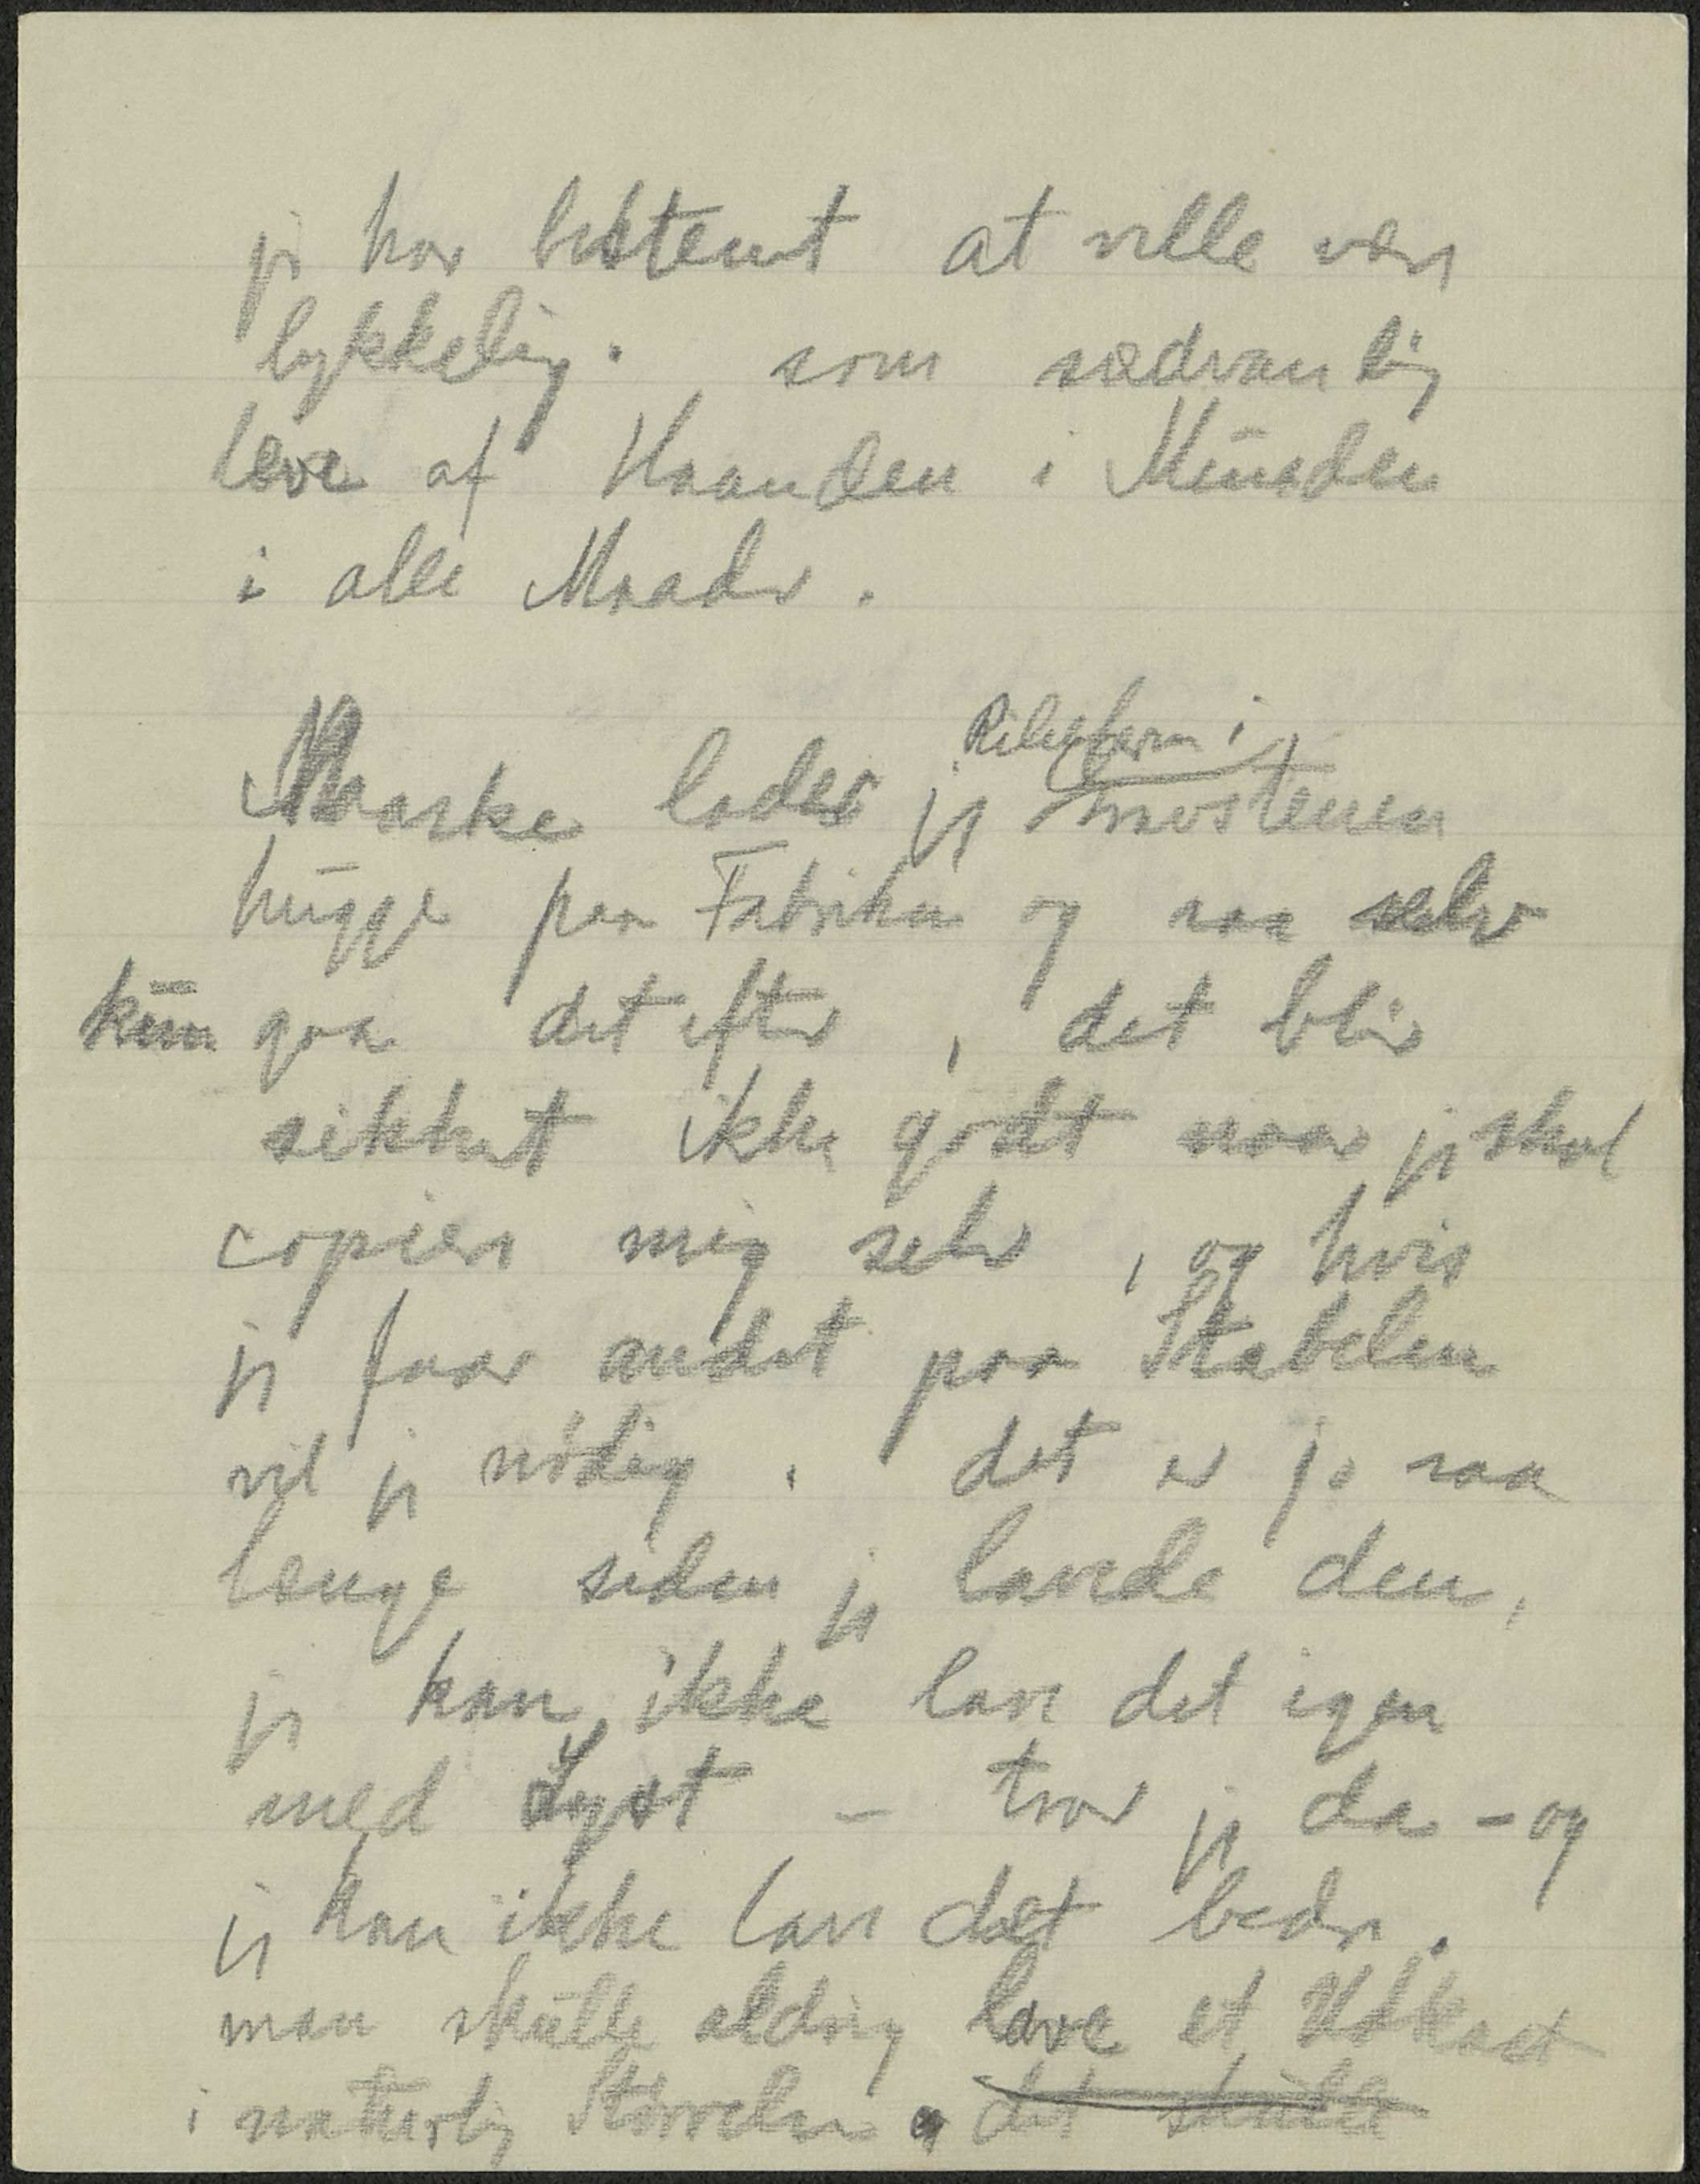 jeg har bestemt at ville være
lykkelig. som sædvanlig
leve af Haanden i Munden
i alle Maader.
Maaske lader jeg i
hugge paa Fabriken og saa selv
kun gaa det efter, det blir
sikkert ikke godt naar jeg skal
copiere mig selv, og hvis
jeg faar andet paa Stabelen
vil jeg nödig. det er jo saa
længe siden jeg lavede den,
jeg kan ikke lave det igen
med Lyst – tror jeg da – og
jeg kan ikke lave det bedre.
man skulle aldrig lave et Udkast
i naturlig Størrelse. det skulde